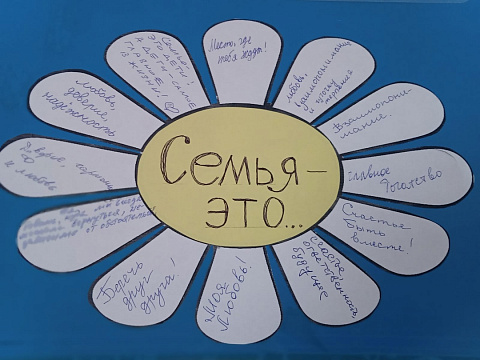 Семья-
это...
Место, где
тебя ждут!
любовь,
взаимопонимание
и чуточку
терпения
Взаимопони-
мание.
главное
богатство
Счастье
быть
вместе!
счастье,
ответственность,
будущее
Моя
Любовь!
Беречь
друг
друга!
и любовь
любовь,
доверие,
надёжность
Семья-
это дети!
А дети - самое
главное
в жизни!